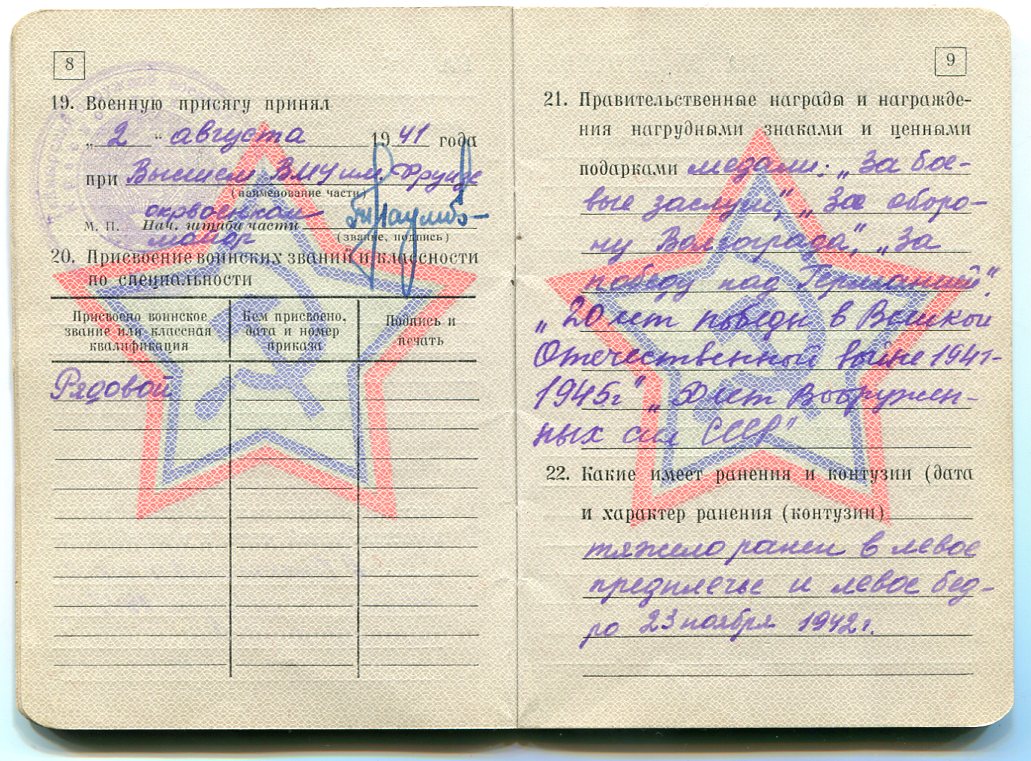 8
19. Военную присягу принял
„ 2 “ августа 1941 года
при Высшем ВМУ им. Фрунзе
(наименование части)
окрвоенком
м. п. Нач. штаба части
майор (звание, подпись)
20. Присвоение воинских званий и классности
по специальности
Присвоено воинское звание или классная квалификация
Кем присвоено, дата и номер приказа
Подпись и печать
Рядовой
9
21. Правительственные награды и награжде-
ния нагрудными знаками и ценными
подарками медали: „За бое-
вые заслуги“, „За оборо-
ну Волгограда“, „За
победу над Германией“.
„20 лет победы в Великой
Отечественной войне 1941-
1945г“ „50 лет Вооружен-
ных сил СССР“
22. Какие имеет ранения и контузии (дата
и характер ранения (контузии)
тяжело ранен в левое
предплечье и левое бед-
ро 23 ноября 1942г.